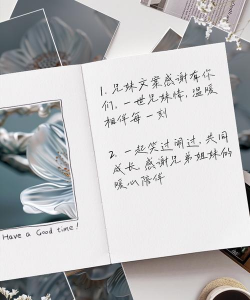 1. 兄妹文案感谢有你
们，一世兄妹情，温暖
相伴每一刻
2. 一起笑过闹过，共同
成长 感谢兄弟姐妹的
暖心陪伴
Have a Good time!